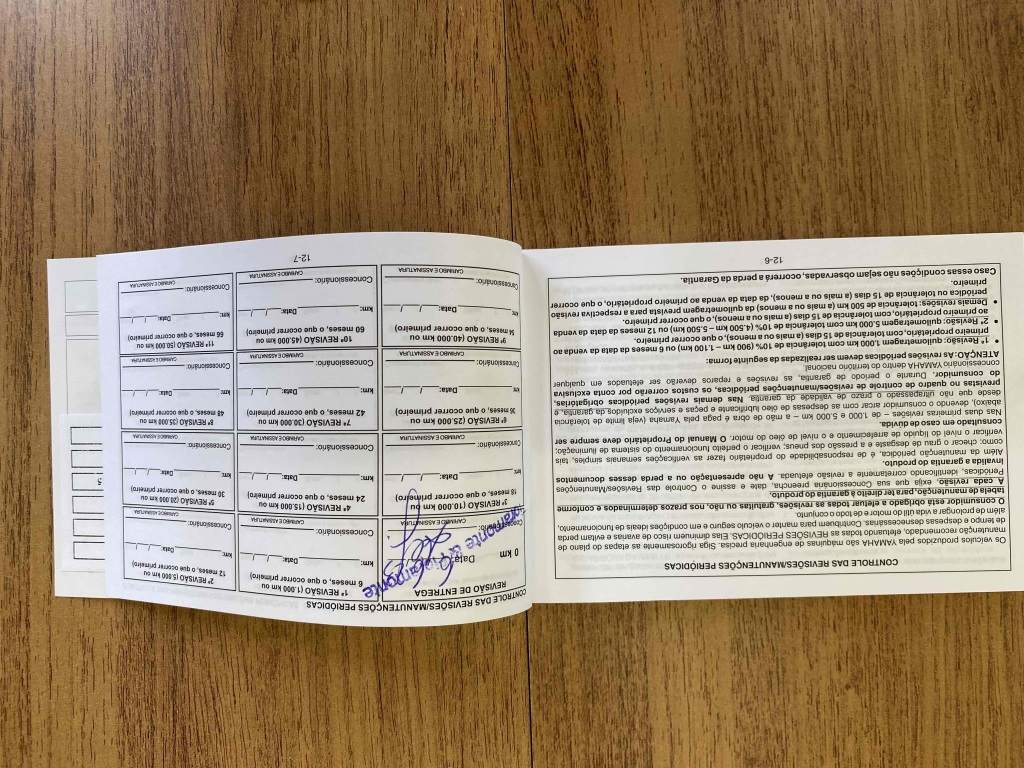 CONTROLE DAS REVISÕES/MANUTENÇÕES PERIÓDICAS
Os veículos produzidos pela YAMAHA são máquinas de engenharia modernas. Siga rigorosamente as etapas do plano de
manutenção recomendado, efetuando todas as REVISÕES PERIÓDICAS. Elas diminuem risco de avarias e evitam perda
de tempo e despesas desnecessárias. Contribuem para manter o veículo seguro e em condições ideais de funcionamento,
além de prolongar a vida útil do motor e de todo o conjunto.
O consumidor está obrigado a efetuar todas as revisões, gratuitas ou não, nos prazos determinados e conforme
tabela de manutenção, para ter direito à garantia do produto.
A cada revisão, exija que sua Concessionária preencha, date e assine o Controle das Revisões/Manutenções
Periódicas, identificando corretamente a revisão efetuada. A não apresentação ou a perda desses documentos
invalida a garantia do produto.
Além da manutenção periódica, é de responsabilidade do proprietário fazer as verificações semanais simples, tais
como: checar o grau de desgaste e a pressão dos pneus, verificar o perfeito funcionamento do sistema de iluminação;
verificar o nível do líquido de arrefecimento e o nível de óleo do motor. O Manual do Proprietário deve sempre ser
consultado em caso de dúvida.
Nas duas primeiras revisões – de 1.000 e 5.000 km – a mão de obra é paga pela Yamaha (veja limite de tolerância
abaixo), devendo o consumidor arcar com as despesas de óleo lubrificante e peças e serviços excluídos da garantia, e
desde que não ultrapassado o prazo de validade da garantia. Nas demais revisões periódicas obrigatórias,
previstas no quadro de controle de revisões/manutenções periódicas, os custos correrão por conta exclusiva
do consumidor. Durante o período de garantia, as revisões e reparos deverão ser efetuados em qualquer
concessionário YAMAHA dentro do território nacional.
ATENÇÃO: As revisões periódicas devem ser realizadas da seguinte forma:
• 1ª Revisão: quilometragem 1.000 km com tolerância de 10% (900 km – 1.100 km) ou 6 meses da data da venda ao
primeiro proprietário, com tolerância de 15 dias (a mais ou a menos), o que ocorrer primeiro.
• 2ª Revisão: quilometragem 5.000 km com tolerância de 10% (4.500 km – 5.500 km) ou 12 meses da data da venda
ao primeiro proprietário, com tolerância de 15 dias (a mais ou a menos), o que ocorrer primeiro.
• Demais revisões: tolerância de 500 km (a mais ou a menos) da quilometragem prevista para a respectiva revisão
periódica ou tolerância de 15 dias (a mais ou a menos), da data da venda ao primeiro proprietário, o que ocorrer
primeiro.
Caso essas condições não sejam observadas, ocorrerá a perda da Garantia.
12-6
CONTROLE DAS REVISÕES/MANUTENÇÕES PERIÓDICAS
REVISÃO DE ENTREGA
0 km
Data:
Concessionário:
CARIMBO E ASSINATURA
1ª REVISÃO (1.000 km ou
6 meses, o que ocorrer primeiro)
km: Data: / /
Concessionário:
CARIMBO E ASSINATURA
2ª REVISÃO (5.000 km ou
12 meses, o que ocorrer primeiro)
km: Data: / /
Concessionário:
CARIMBO E ASSINATURA
3ª REVISÃO (10.000 km ou
18 meses, o que ocorrer primeiro)
km: Data: / /
Concessionário:
CARIMBO E ASSINATURA
4ª REVISÃO (15.000 km ou
24 meses, o que ocorrer primeiro)
km: Data: / /
Concessionário:
CARIMBO E ASSINATURA
5ª REVISÃO (20.000 km ou
30 meses, o que ocorrer primeiro)
km: Data: / /
Concessionário:
CARIMBO E ASSINATURA
6ª REVISÃO (25.000 km ou
36 meses, o que ocorrer primeiro)
km: Data: / /
Concessionário:
CARIMBO E ASSINATURA
7ª REVISÃO (30.000 km ou
42 meses, o que ocorrer primeiro)
km: Data: / /
Concessionário:
CARIMBO E ASSINATURA
8ª REVISÃO (35.000 km ou
48 meses, o que ocorrer primeiro)
km: Data: / /
Concessionário:
CARIMBO E ASSINATURA
9ª REVISÃO (40.000 km ou
54 meses, o que ocorrer primeiro)
km: Data: / /
Concessionário:
CARIMBO E ASSINATURA
10ª REVISÃO (45.000 km ou
60 meses, o que ocorrer primeiro)
km: Data: / /
Concessionário:
CARIMBO E ASSINATURA
11ª REVISÃO (50.000 km ou
66 meses, o que ocorrer primeiro)
km: Data: / /
Concessionário:
CARIMBO E ASSINATURA
12-7